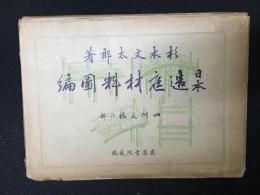 杉本文太郎著
日本造庭材料圖編
四阿及橋之部
建築書院蔵版